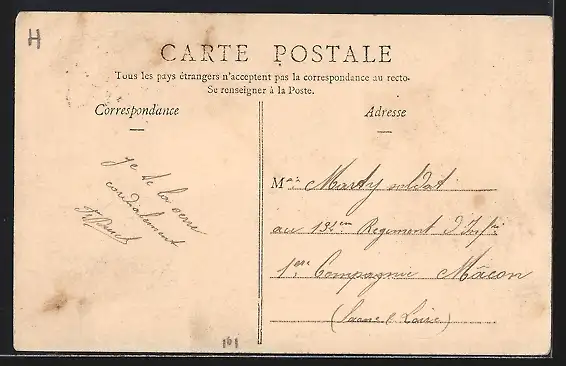 H
CARTE POSTALE
Tous les pays étrangers n'acceptent pas la correspondance au recto.
Se renseigner à la Poste.
Correspondance
je te la serre
cordialement
Adresse
M Marty soldat
au 134em Regiment d'Inf ie
1ere Compagnie Mâcon
(Saone & Loire)
161